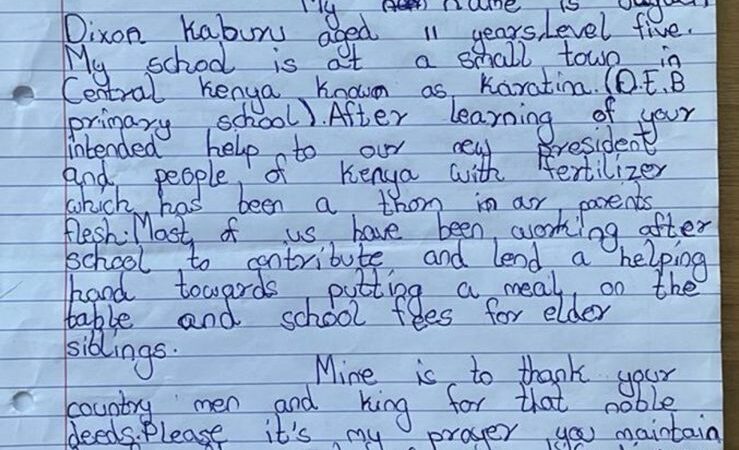 My name is
Dixon Kaburu aged 11 years, Level five.
My school is at a small town in
Central Kenya known as Karatina. (D.E.B
primary school). After learning of your
intended help to our new president
and people of Kenya with fertilizer
which has been a thorn in our parents
flesh. Most of us have been working after
school to contribute and lend a helping
hand towards putting a meal on the
table and school fees for elder
siblings.
Mine is to thank your
country men and king for that noble
deeds. Please it's my prayer you maintain